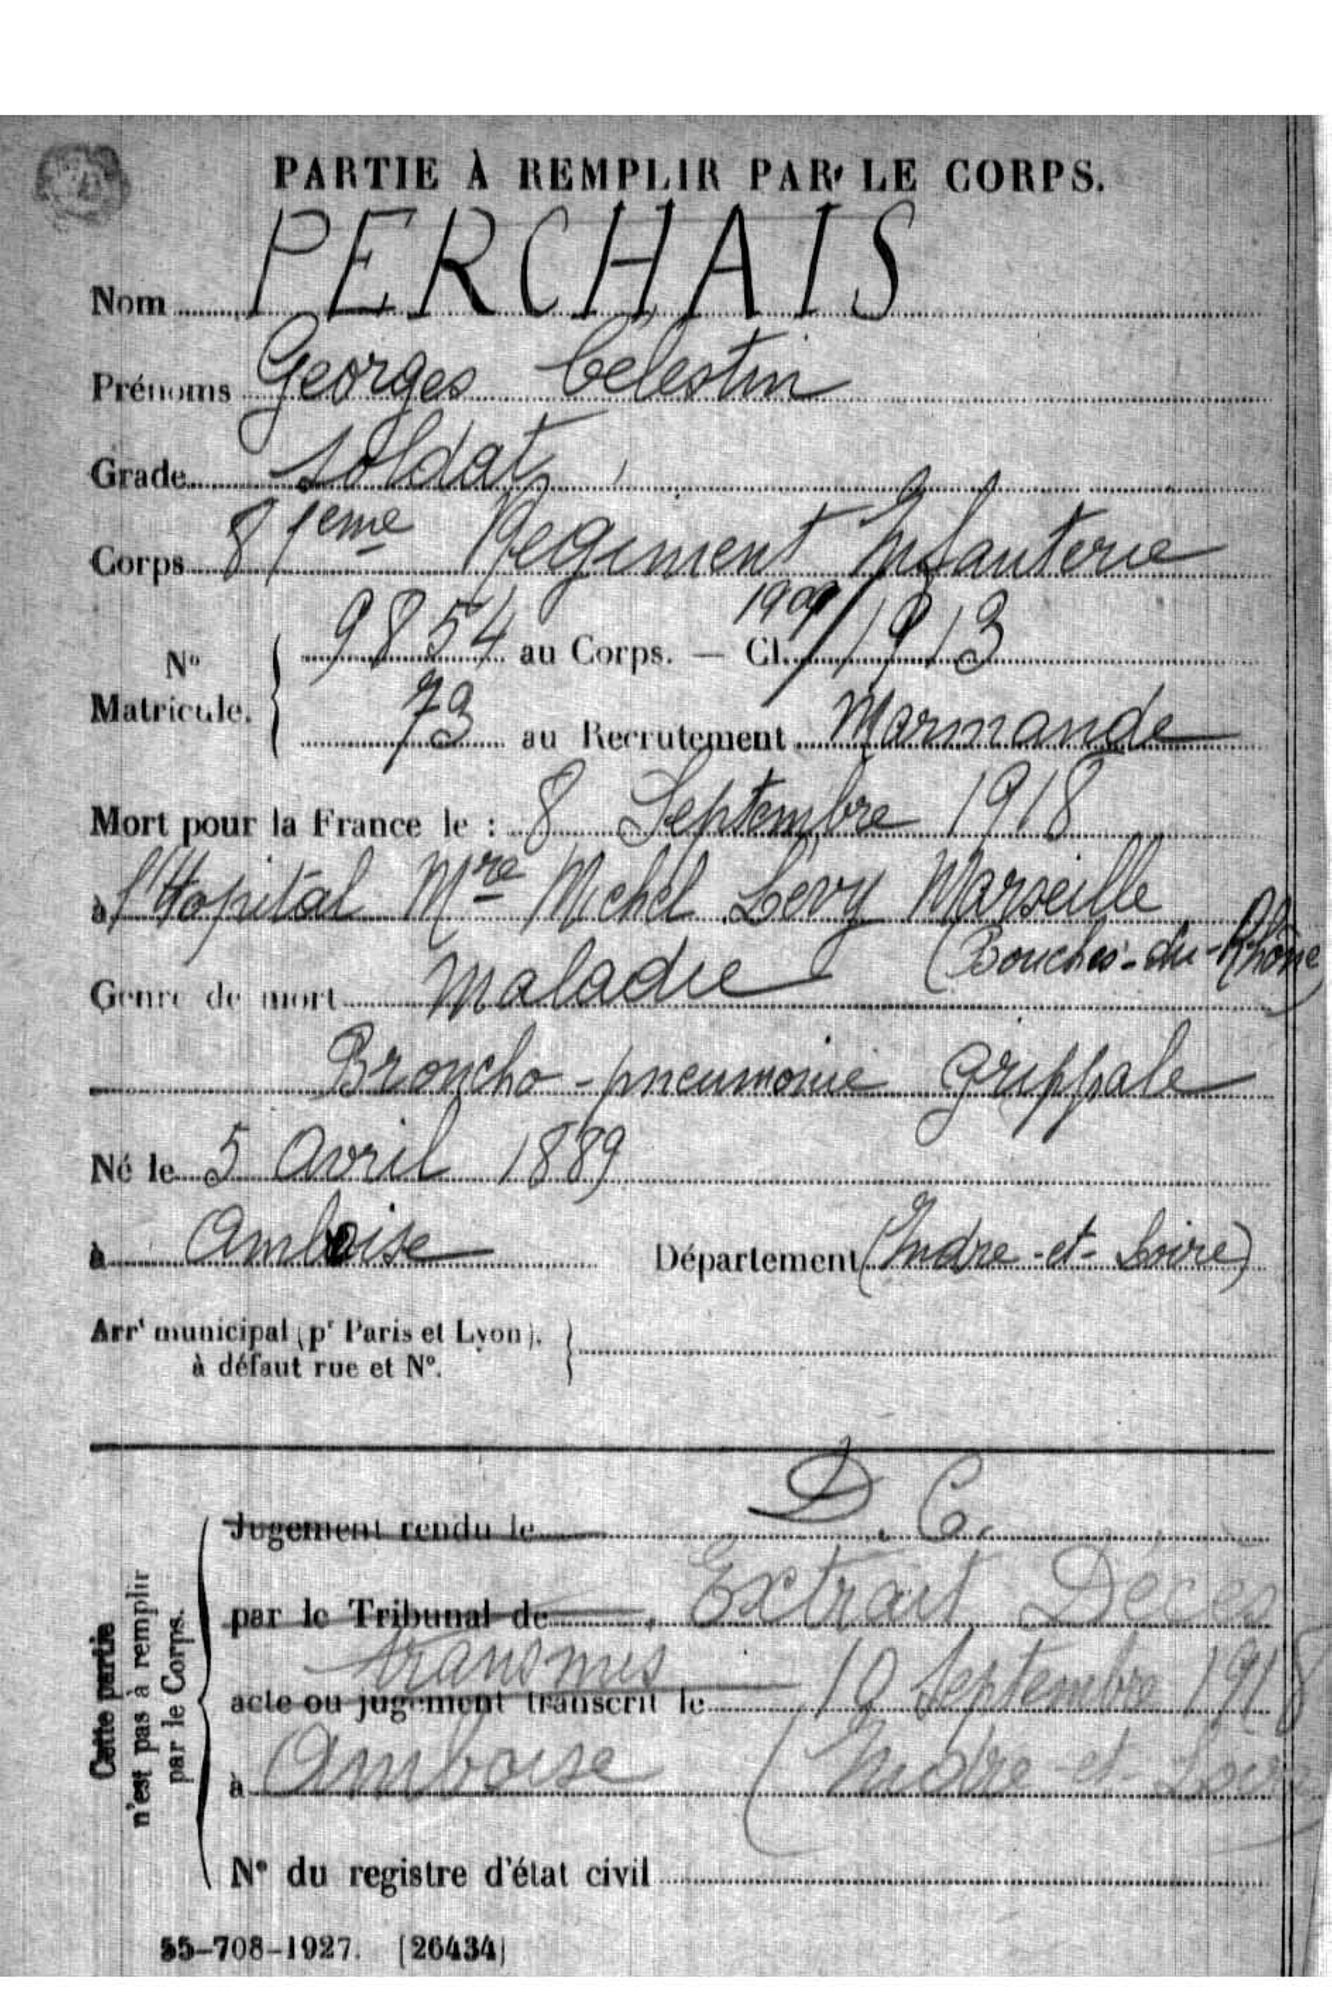 PARTIE À REMPLIR PAR LE CORPS.
Nom PERCHAIS
Prénoms Georges Célestin
Grade soldat
Corps 81eme Regiment Infanterie
No Matricule. 9854 au Corps. — Cl. 1909/1913
73 au Recrutement Marmande
Mort pour la France le : 8 Septembre 1918
à l'Hopital Mre Michel Levy Marseille
(Bouches-du-Rhône)
Genre de mort Maladie
Broncho-pneumonie Grippale
Né le 5 Avril 1889
à Amboise Département (Indre-et-Loire)
Arrt municipal (pr Paris et Lyon),
à défaut rue et No.
D. C.
Jugement rendu le
par le Tribunal de Extrait Décès
transmis
acte ou jugement transcrit le 10 Septembre 1918
à Amboise (Indre-et-Loire)
No du registre d'état civil
Cette partie
n'est pas à remplir
par le Corps.
55-708-1927. [26434]